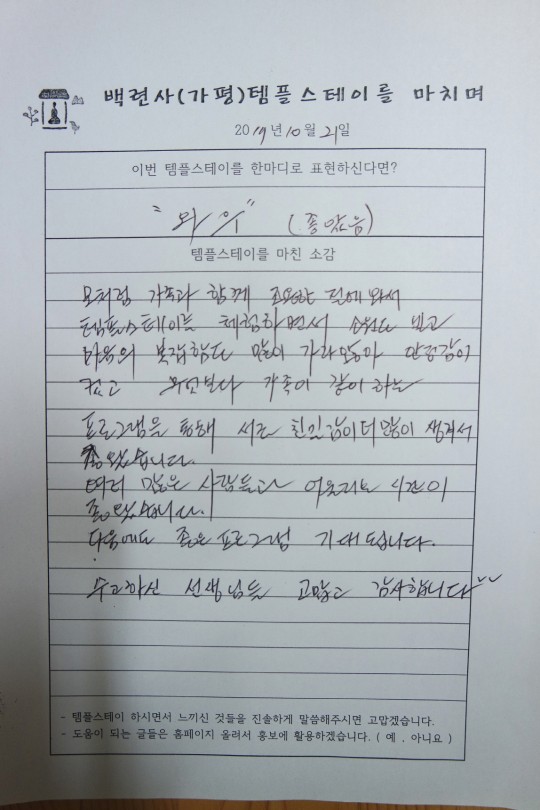 백련사(가평)템플스테이를 마치며
2019년 10월 21일
이번 템플스테이를 한마디로 표현하신다면?
"와우" (좋았음)
템플스테이를 마친 소감
모처럼 가족과 함께 조용한 절에 와서
템플스테이를 체험하면서 소원도 빌고
마음의 복잡함도 많이 가라앉아 안정감이
컸고 무엇보다 가족이 같이 하는
프로그램을 통해 서로 친밀감이 더 많이 생겨서
좋았습니다.
여러 많은 사람들과 어울리는 시간이
좋았습니다.
다음에도 좋은 프로그램 기대됩니다.
수고하신 선생님들 고맙고 감사합니다
- 템플스테이 하시면서 느끼신 것들을 진솔하게 말씀해주시면 고맙겠습니다.
- 도움이 되는 글들은 홈페이지 올려서 홍보에 활용하겠습니다. ( 예 , 아니요 )